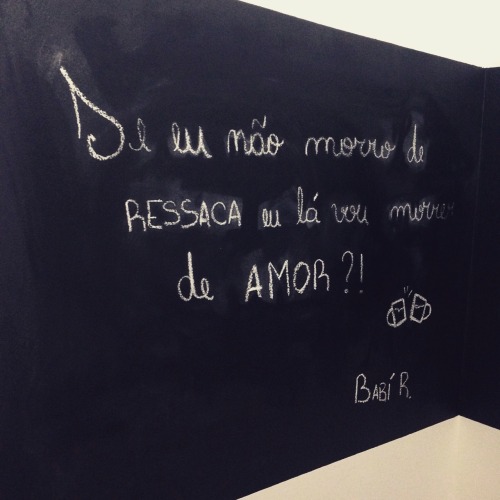 Se eu não morro de
RESSACA eu lá vou morrer
de AMOR?!
BABÍ R.